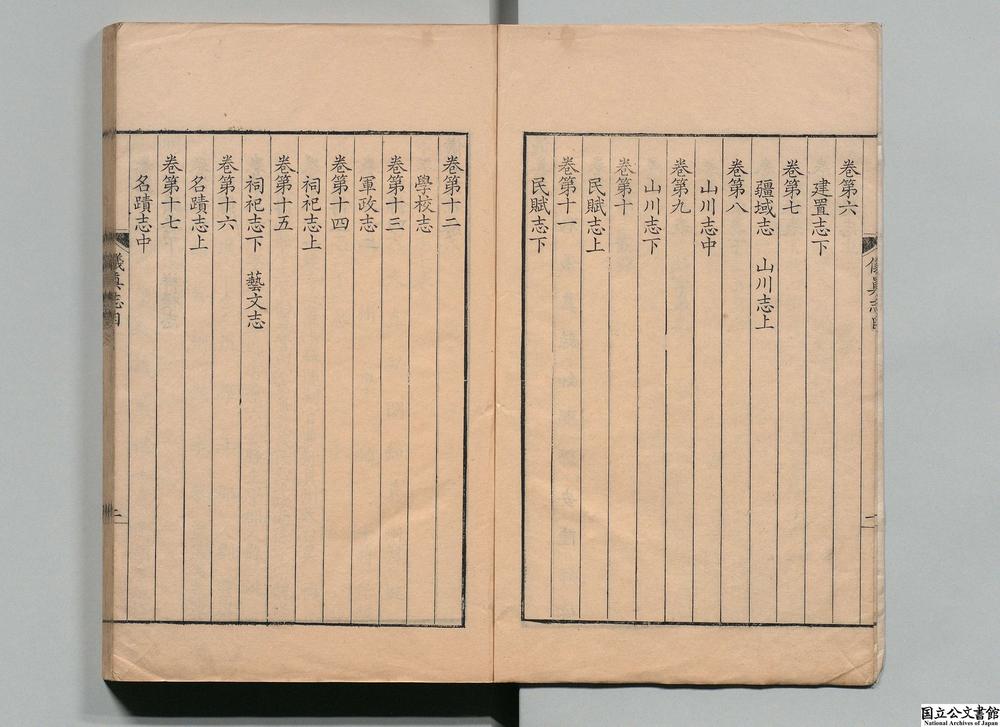 卷第六
建置志下
卷第七
疆域志　山川志上
卷第八
山川志中
卷第九
山川志下
卷第十
民賦志上
卷第十一
民賦志下
卷第十二
學校志
卷第十三
軍政志
卷第十四
祠祀志上
卷第十五
祠祀志下　藝文志
卷第十六
名蹟志上
卷第十七
名蹟志中
儀真志目
二
国立公文書館
National Archives of Japan